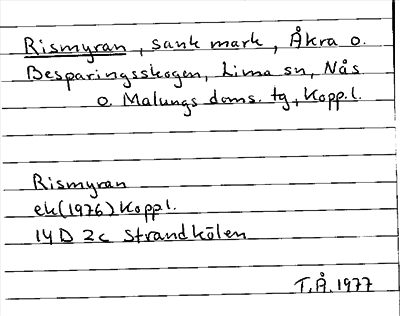 Rismyran, sank mark, Åkra o.
Besparingsskogen, Lima sn, Nås
o. Malungs doms. tg, Kopp.l.
Rismyran
ek(1976) Kopp.l.
14D 2c Strandkölen
T.Å. 1977